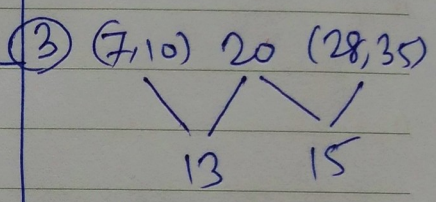 3 (7,10) 20 (28,35)
13 15